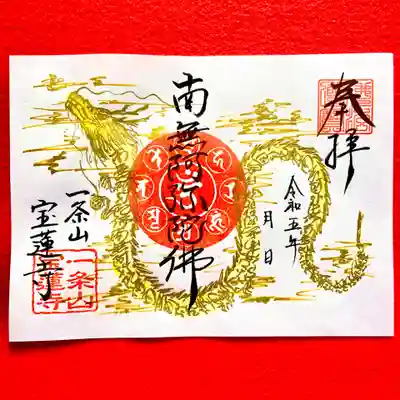 奉拝
令和五年
月日
南無阿弥陀佛
一条山
宝蓮寺
一条山
宝蓮寺